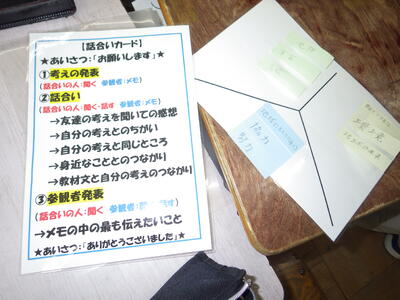 【話合いカード】
★あいさつ:「お願いします」★
①考えの発表
(話合いの人:聞く 参観者:メモ)
②話合い
(話合いの人:聞く・話す 参観者:メモ)
→友達の考えを聞いての感想
→自分の考えとのちがい
→自分の考えと同じところ
→身近なこととのつながり
→教材文と自分の考えのつながり
③参観者発表
(話合いの人:聞く 参観者: 話す)
→メモの中の最も伝えたいこと
★あいさつ:「ありがとうございました」★
協力
努力